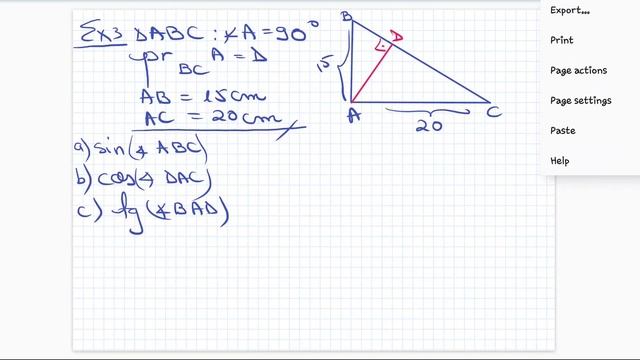 Ex3 △ABC : ∢A = 90°
pr BC A = D
AB = 15cm
AC = 20cm
a) sin(∢ ABC)
b) cos(∢ DAC)
c) tg(∢BAD)
B
D
15
A
C
20
Export...
Print
Page actions
Page settings
Paste
Help